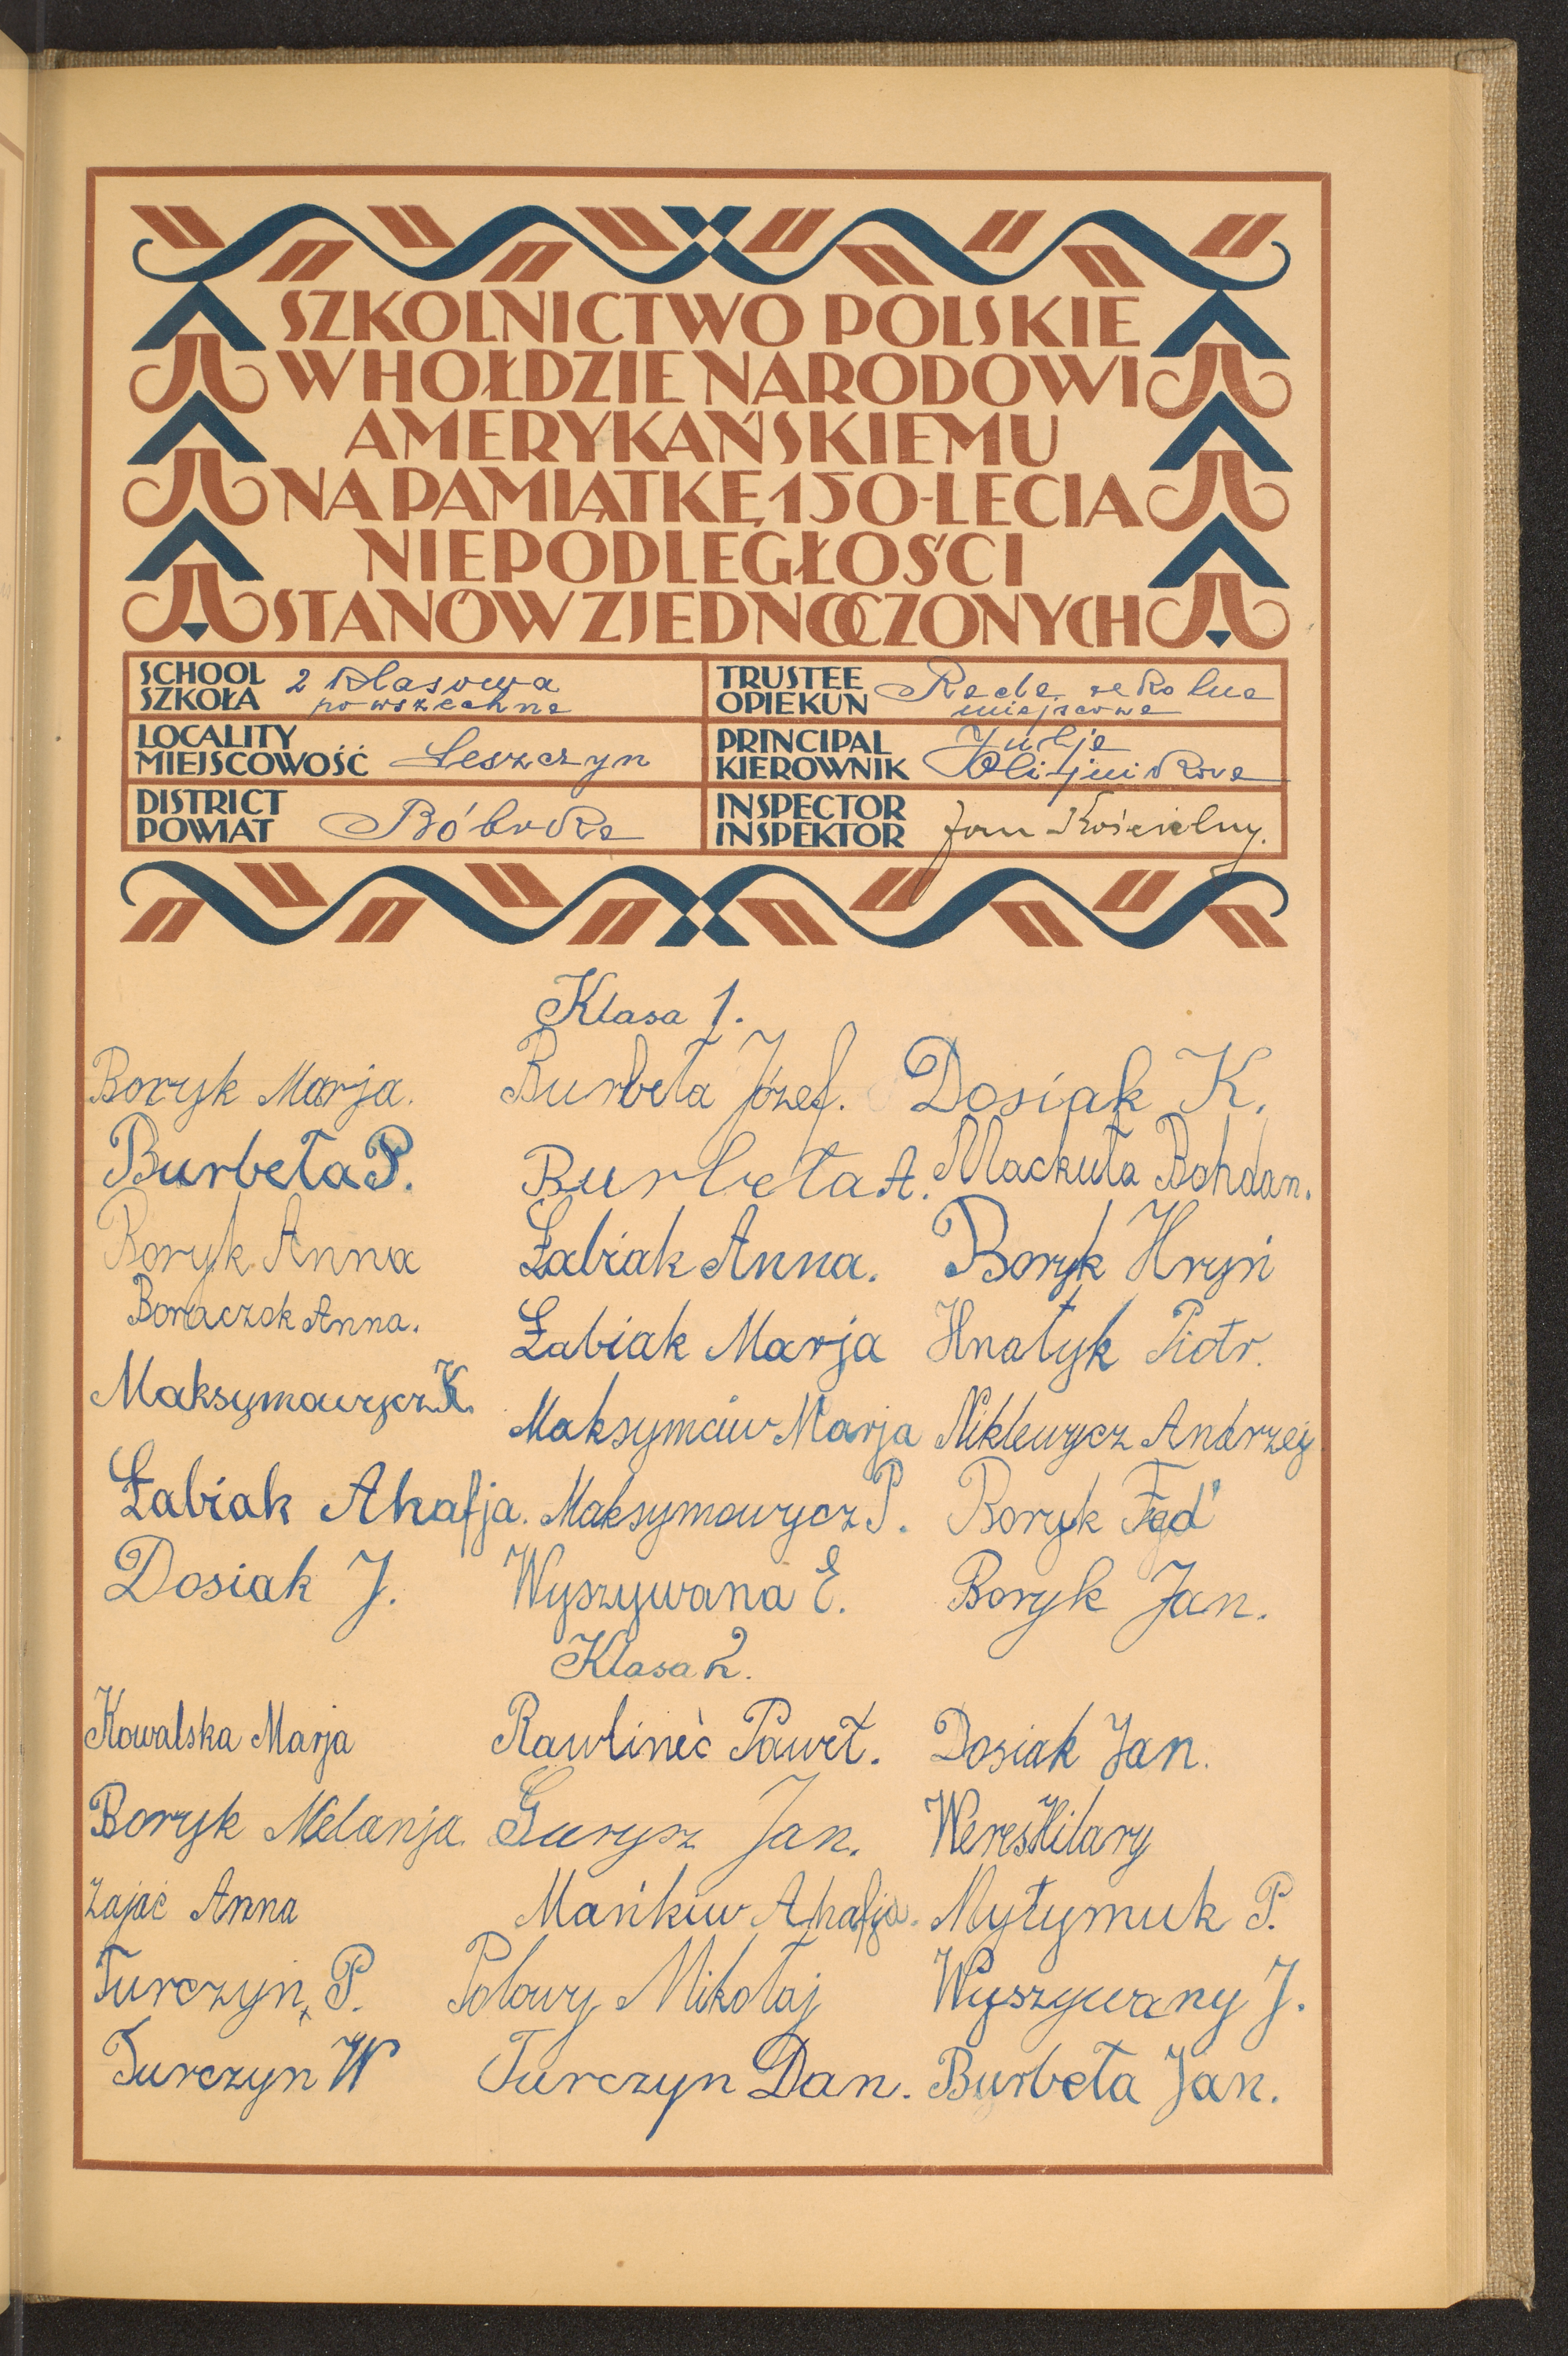 SZKOLNICTWO POLSKIE
W HOŁDZIE NARODOWI
AMERYKAŃSKIEMU
NA PAMIĄTKĘ 150-LECIA
NIEPODLEGŁOŚCI
STANÓW ZJEDNOCZONYCH
SCHOOL
SZKOŁA
2 klasowa
powszechna
TRUSTEE
OPIEKUN
Rada szkolna
miejscowa
LOCALITY
MIEJSCOWOŚĆ
Leszczyn
PRINCIPAL
KIEROWNIK
Julja
DISTRICT
POWIAT
Bóbrka
INSPECTOR
INSPEKTOR
Jan Kościelny.
Klasa 1.
Boryk Marja. Burbeła Józef. Dosiak K.
Burbeła P. Burbeła A. Mackuła Bohdan.
Boryk Anna Łabiak Anna. Boryk Hryń
Boraczok Anna. Łabiak Marja Hnatyk Piotr.
Maksymowycz K. Maksymciw Marja Niklewycz Andrzej
Łabiak Ahafja. Maksymowycz P. Boryk Fed'
Dosiak J. Wyszywana E. Boryk Jan.
Klasa 2.
Kowalska Marja Rawlineć Paweł. Dosiak Jan.
Boryk Melanja Gurysz Jan. Weres Hilary
Zając Anna Mańkiw Ahafja. Mytymuk P.
Turczyn P. Polowy Mikołaj Wyszywany J.
Turczyn W Turczyn Dan. Burbeła Jan.